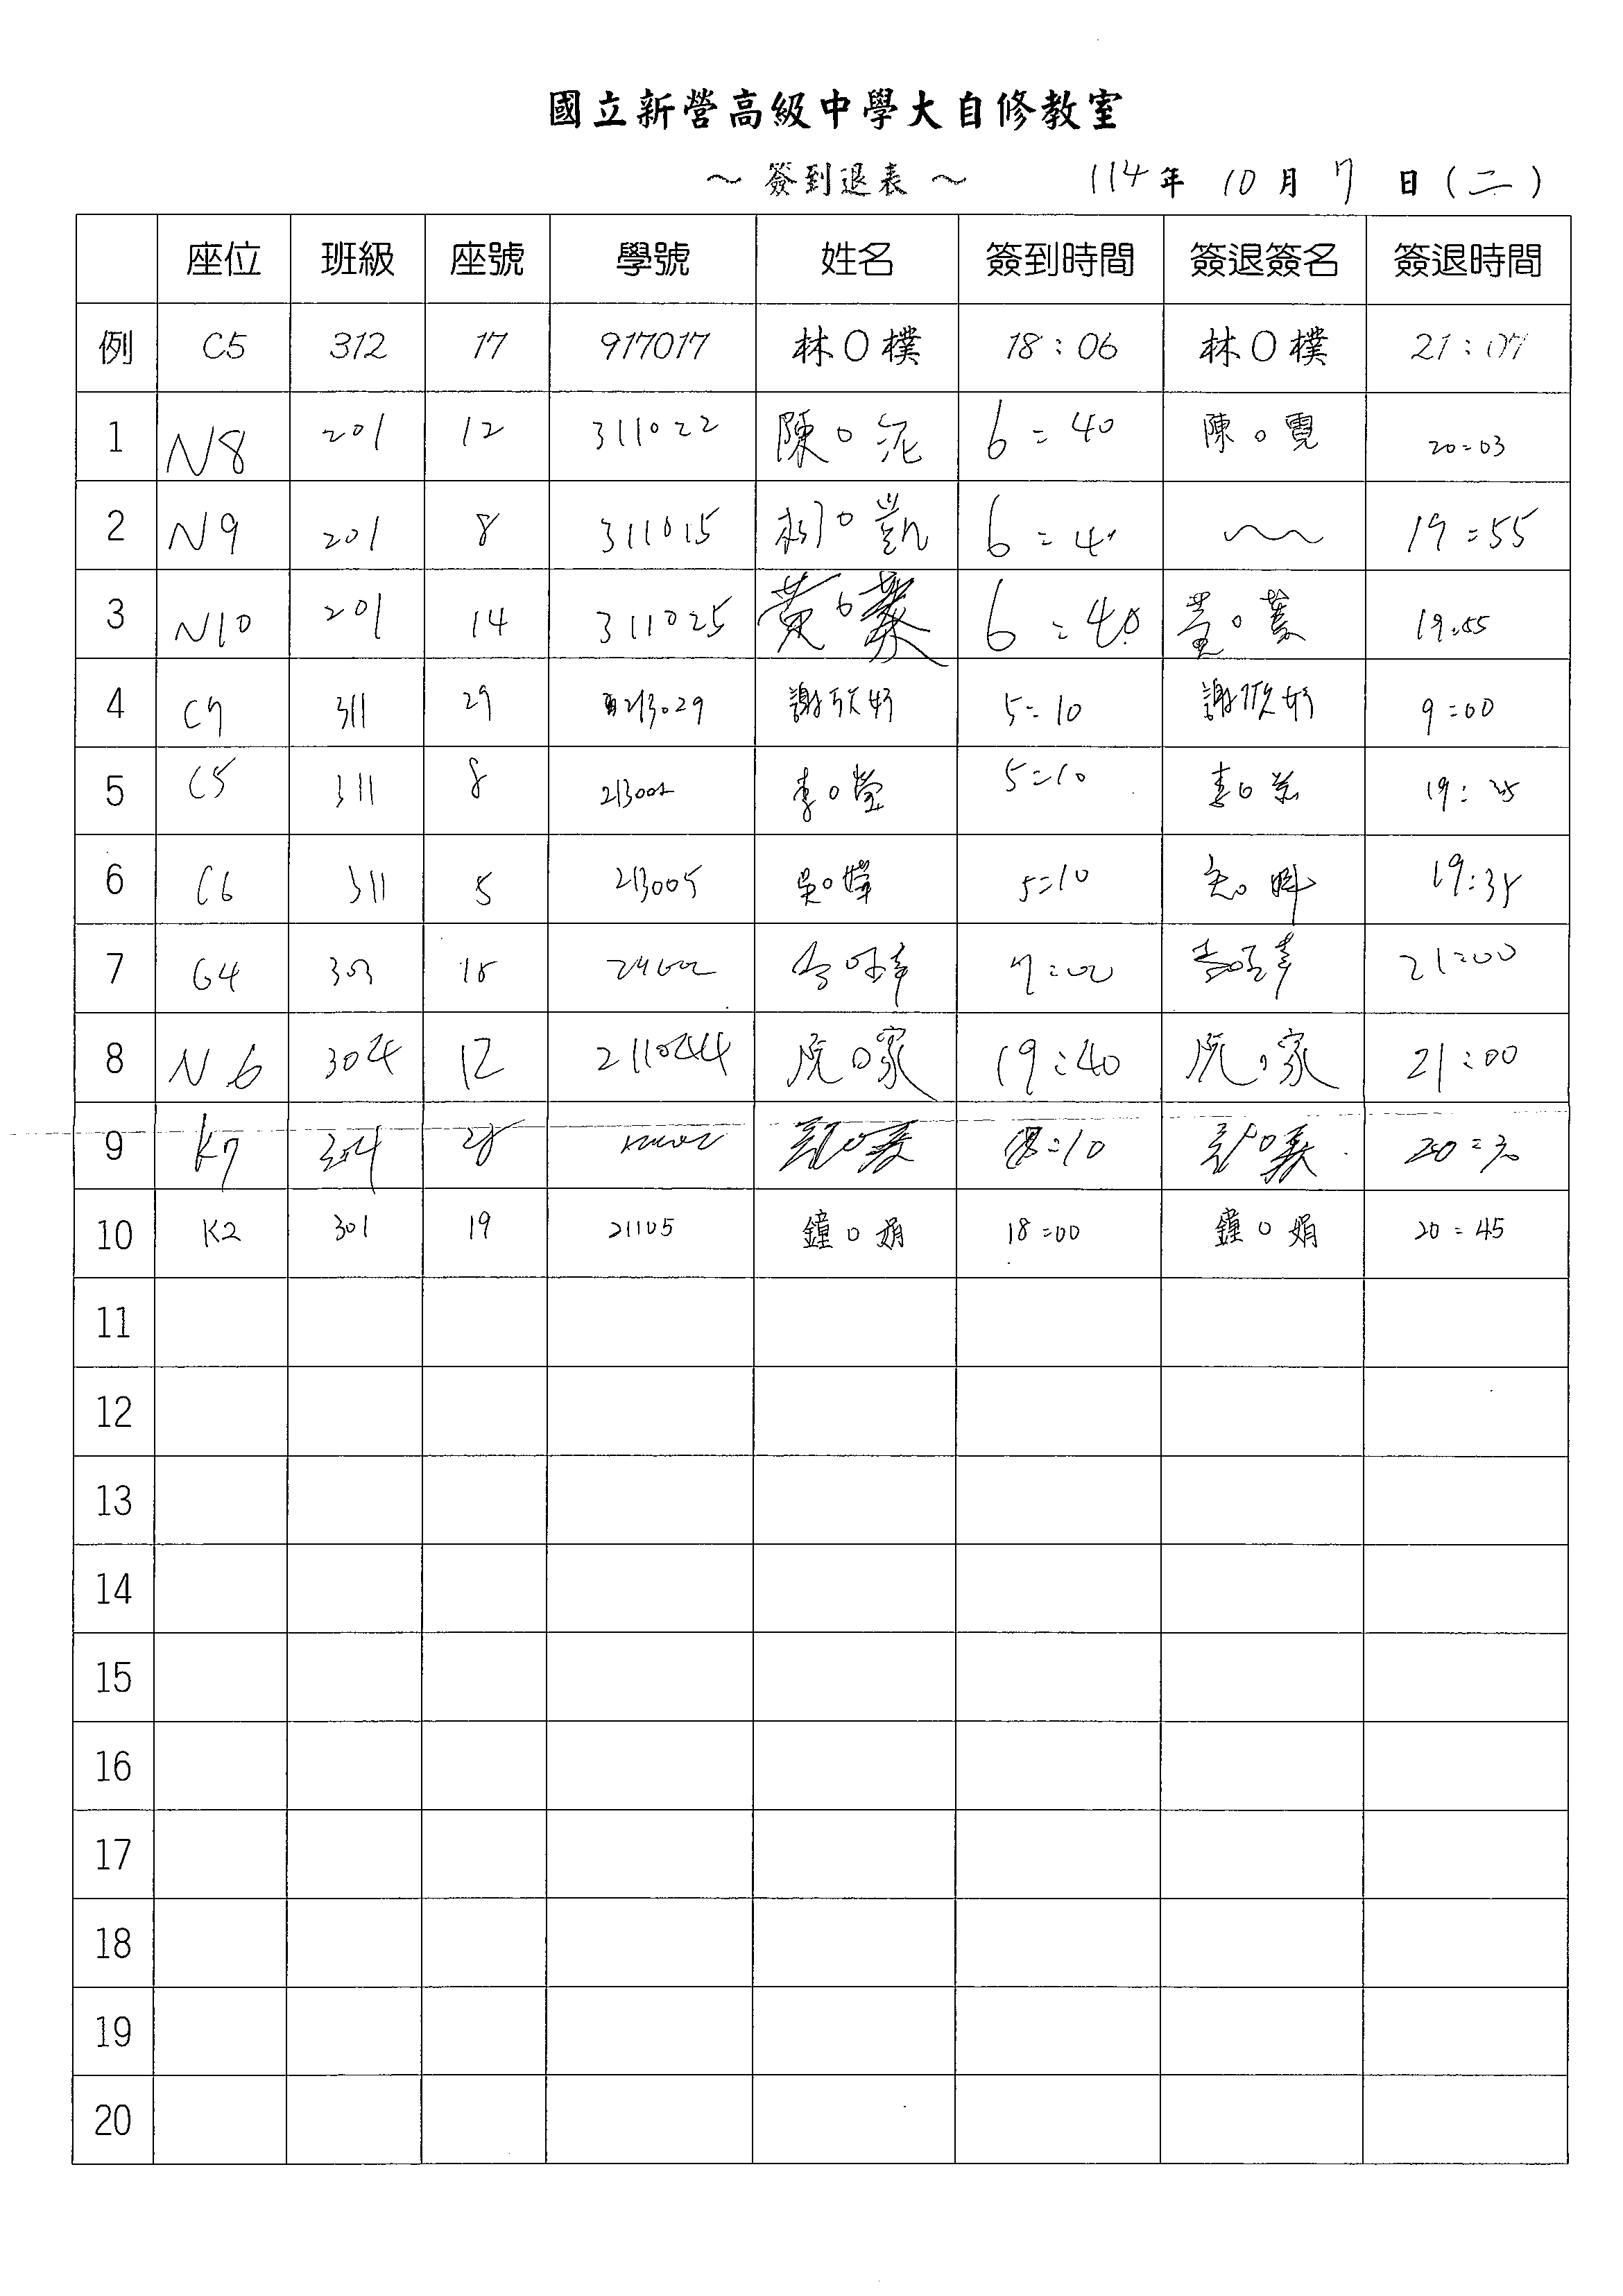 國立新營高級中學大自修教室
～ 簽到退表 ～ 114年 10月 7日(二)
座位 班級 座號 學號 姓名 簽到時間 簽退簽名 簽退時間
例 C5 312 17 917017 林O樸 18:06 林O樸 21:07
1 N8 201 12 311022 陳O 6:40 陳O霓 20:03
2 N9 201 8 311015 O凱 6:4 19:55
3 N10 201 14 311025 黃O 6:40 O 19:55
4 C7 311 29 213029 謝欣妤 5:10 謝欣妤 9:00
5 C5 311 8 李O瑩 5:10 19:
6 C6 311 5 213005 吳O 5:10 19:35
7 G4 303 7:00 21:00
8 N6 304 12 211044 阮O家 19:40 阮O家 21:00
9 K7 304 :10 20:30
10 K2 301 19 21105 鐘O娟 18:00 鐘O娟 20:45
11
12
13
14
15
16
17
18
19
20